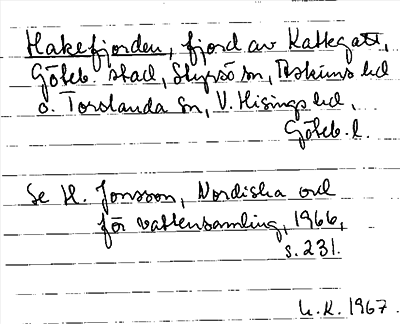 Hakefjorden, fjord av Kattegatt,
Göteb. stad, Styrsö sn, Askims hd
o. Torslanda sn, V. Hisings hd,
Göteb. l.
Se H. Jonsson, Nordiska ord
för vattensamling, 1966,
s. 231.
1967.